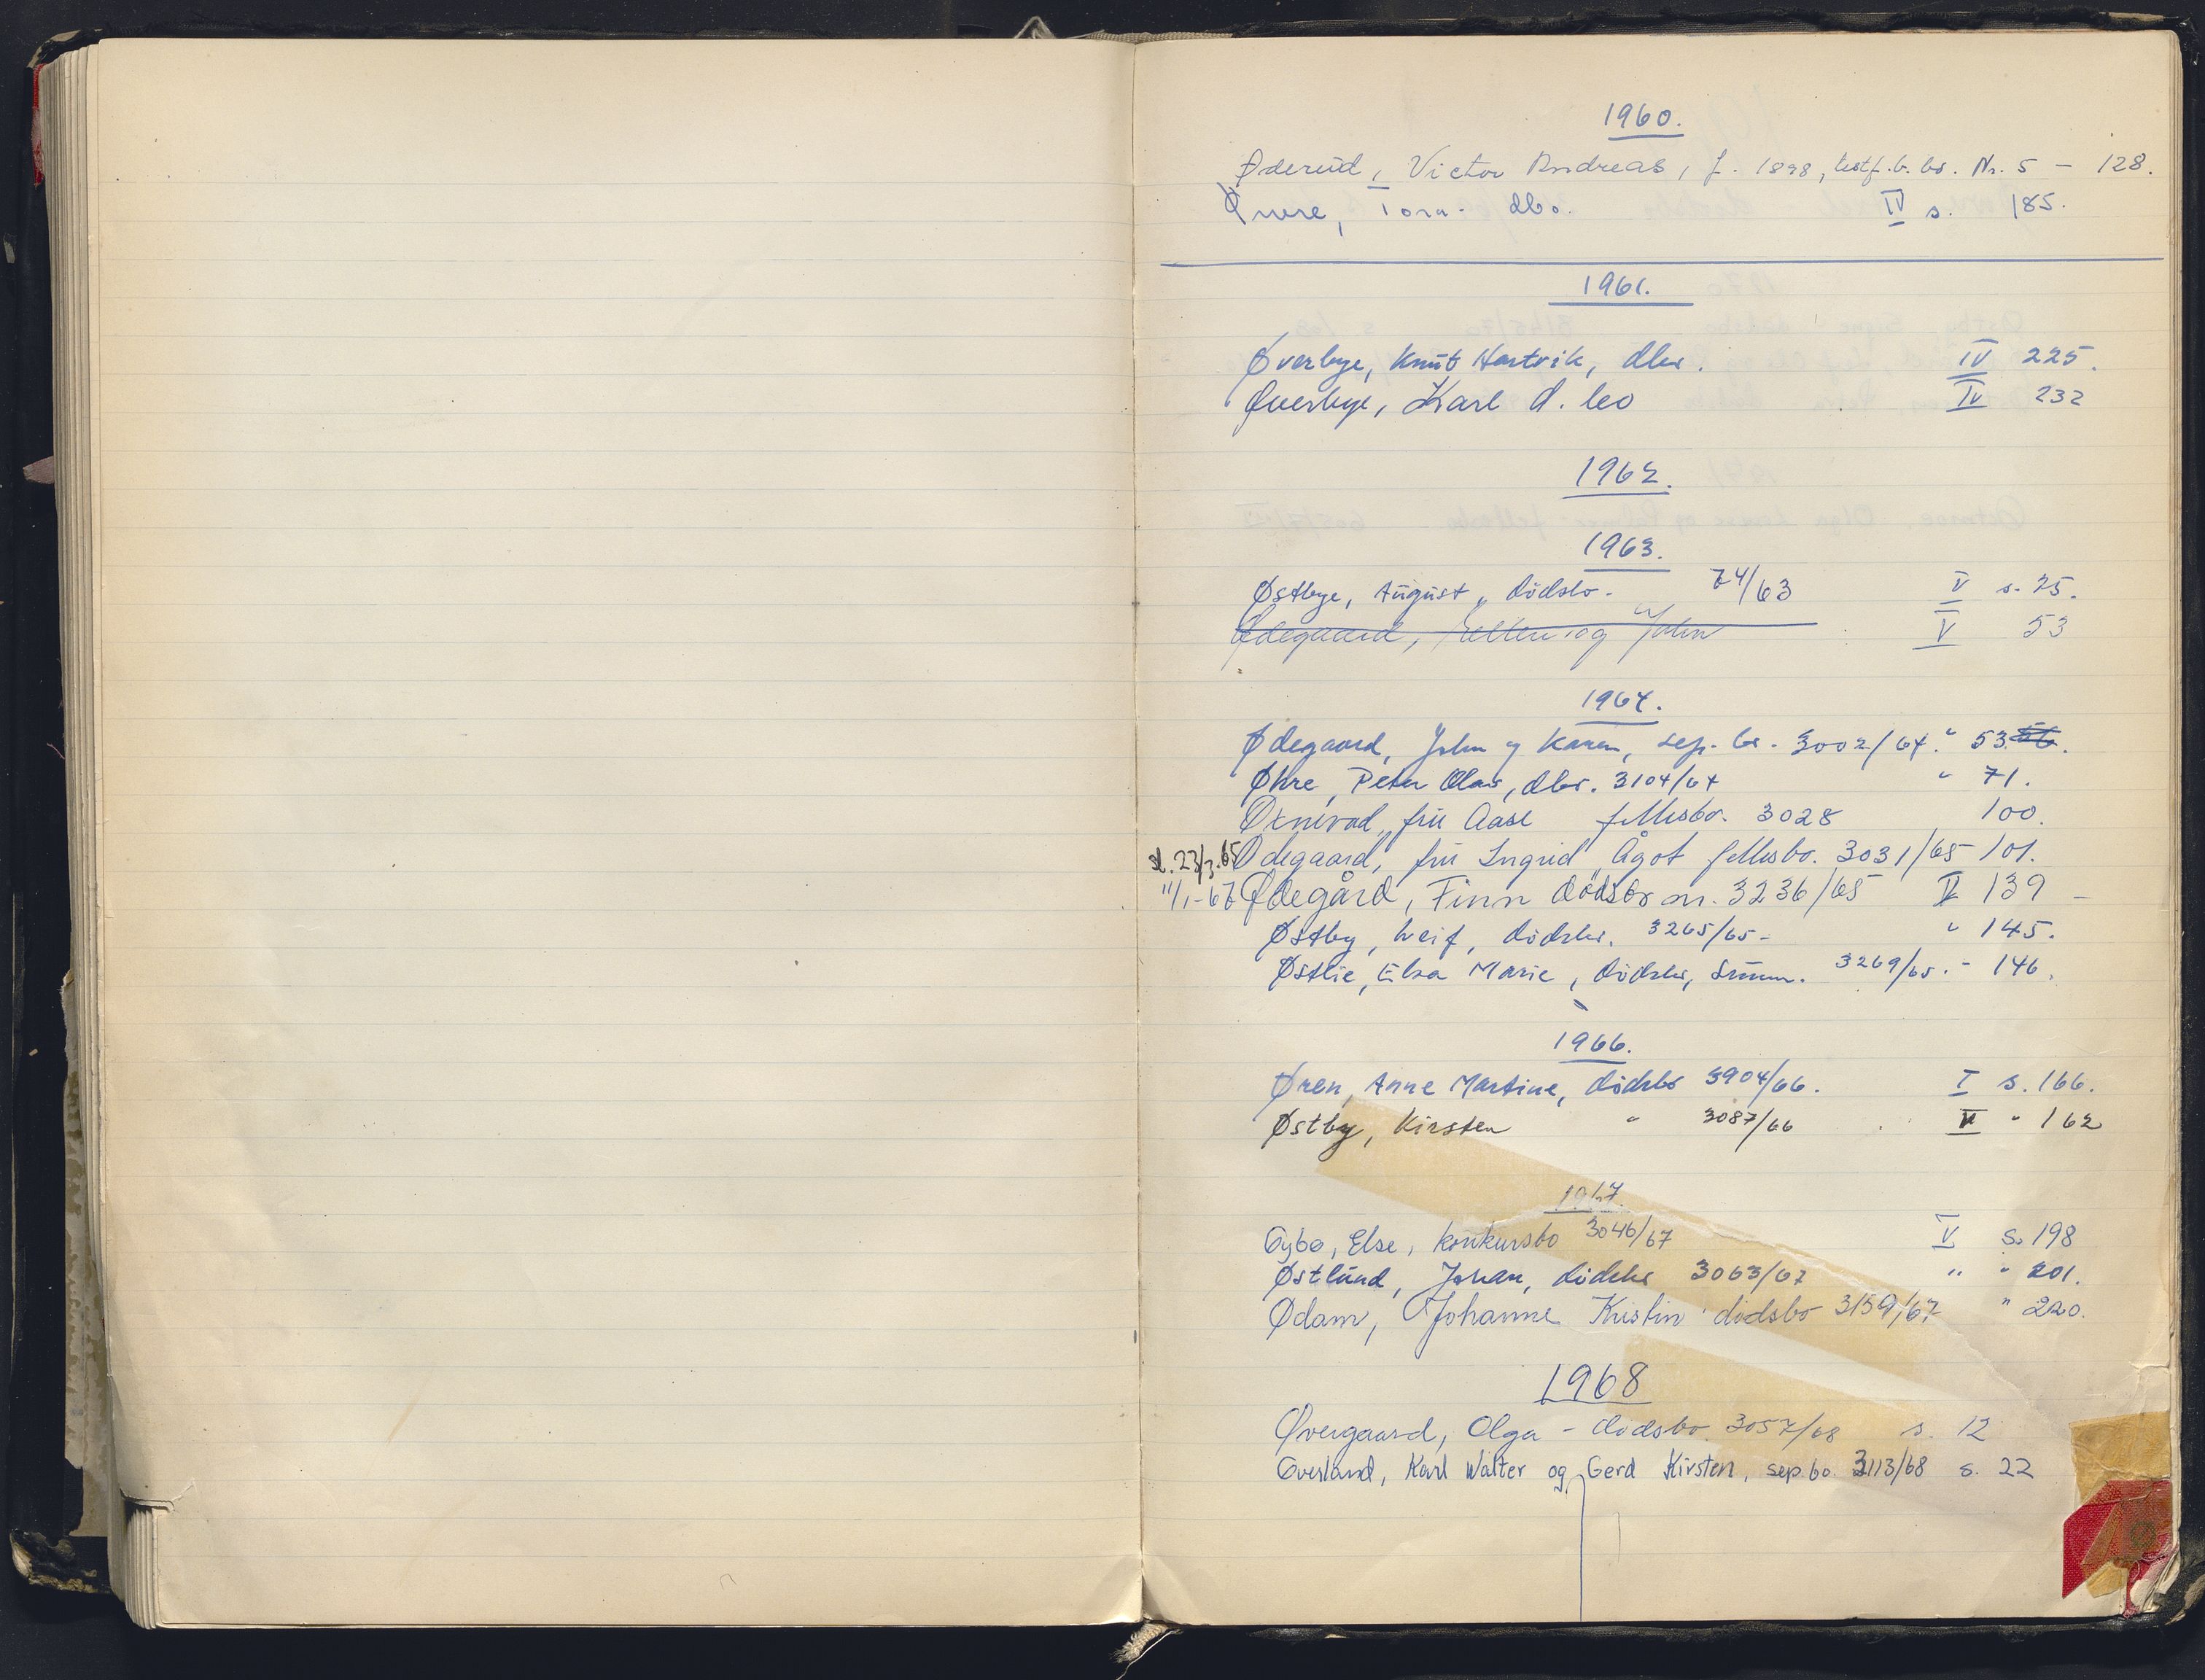 1960.
Øderud, Victor Andreas, f. 1898, testf. b. bo. Nr. 5 - 128.
Øvre, Tora - dbo. IV s. 185.
1961.
Øverbye, Knut Hartvik, dbo. IV 225.
Øverbye, Karl d. bo IV 232
1962.
1963.
Østbye, August, dödsbo - 74/63 V s. 25.
Ødegaard, Ellen og John V 53
1964.
Ødegaard, John og Karen, sep. bo. 3002/64. " 53. 56.
Øhre, Peter Olav, dbo. 3104/64 " 71.
fru Aase fellesbo. 3028 100.
sl. 23/3.65 Ødegaard, fru Ingrid Ågot fellesbo. 3031/65 101.
11/1-67 Ødegård, Finn dødsbo nr. 3236/65 V 139 -
Østby, Leif, dödsbo. 3265/65 - " 145.
Østlie, Elsa Marie, dödsbo, summ. 3269/65. - 146.
1966.
Øren, Anne Martine, dödsbo 3904/66. I s. 166.
Østby, Kirsten " 3087/66 V " 162
1967.
Øybø, Else, konkursbo 3046/67 V s. 198
Østlund, Johan, dödsbo 3063/67 " " 201.
Ødam, Johanne Kristin dødsbo 3159/67 " 220.
1968
Øvergaard, Olga - dødsbo 3057/68 s. 12
Øverland, Karl Walter og Gerd Kirsten, sep. bo. 3113/68 s. 22